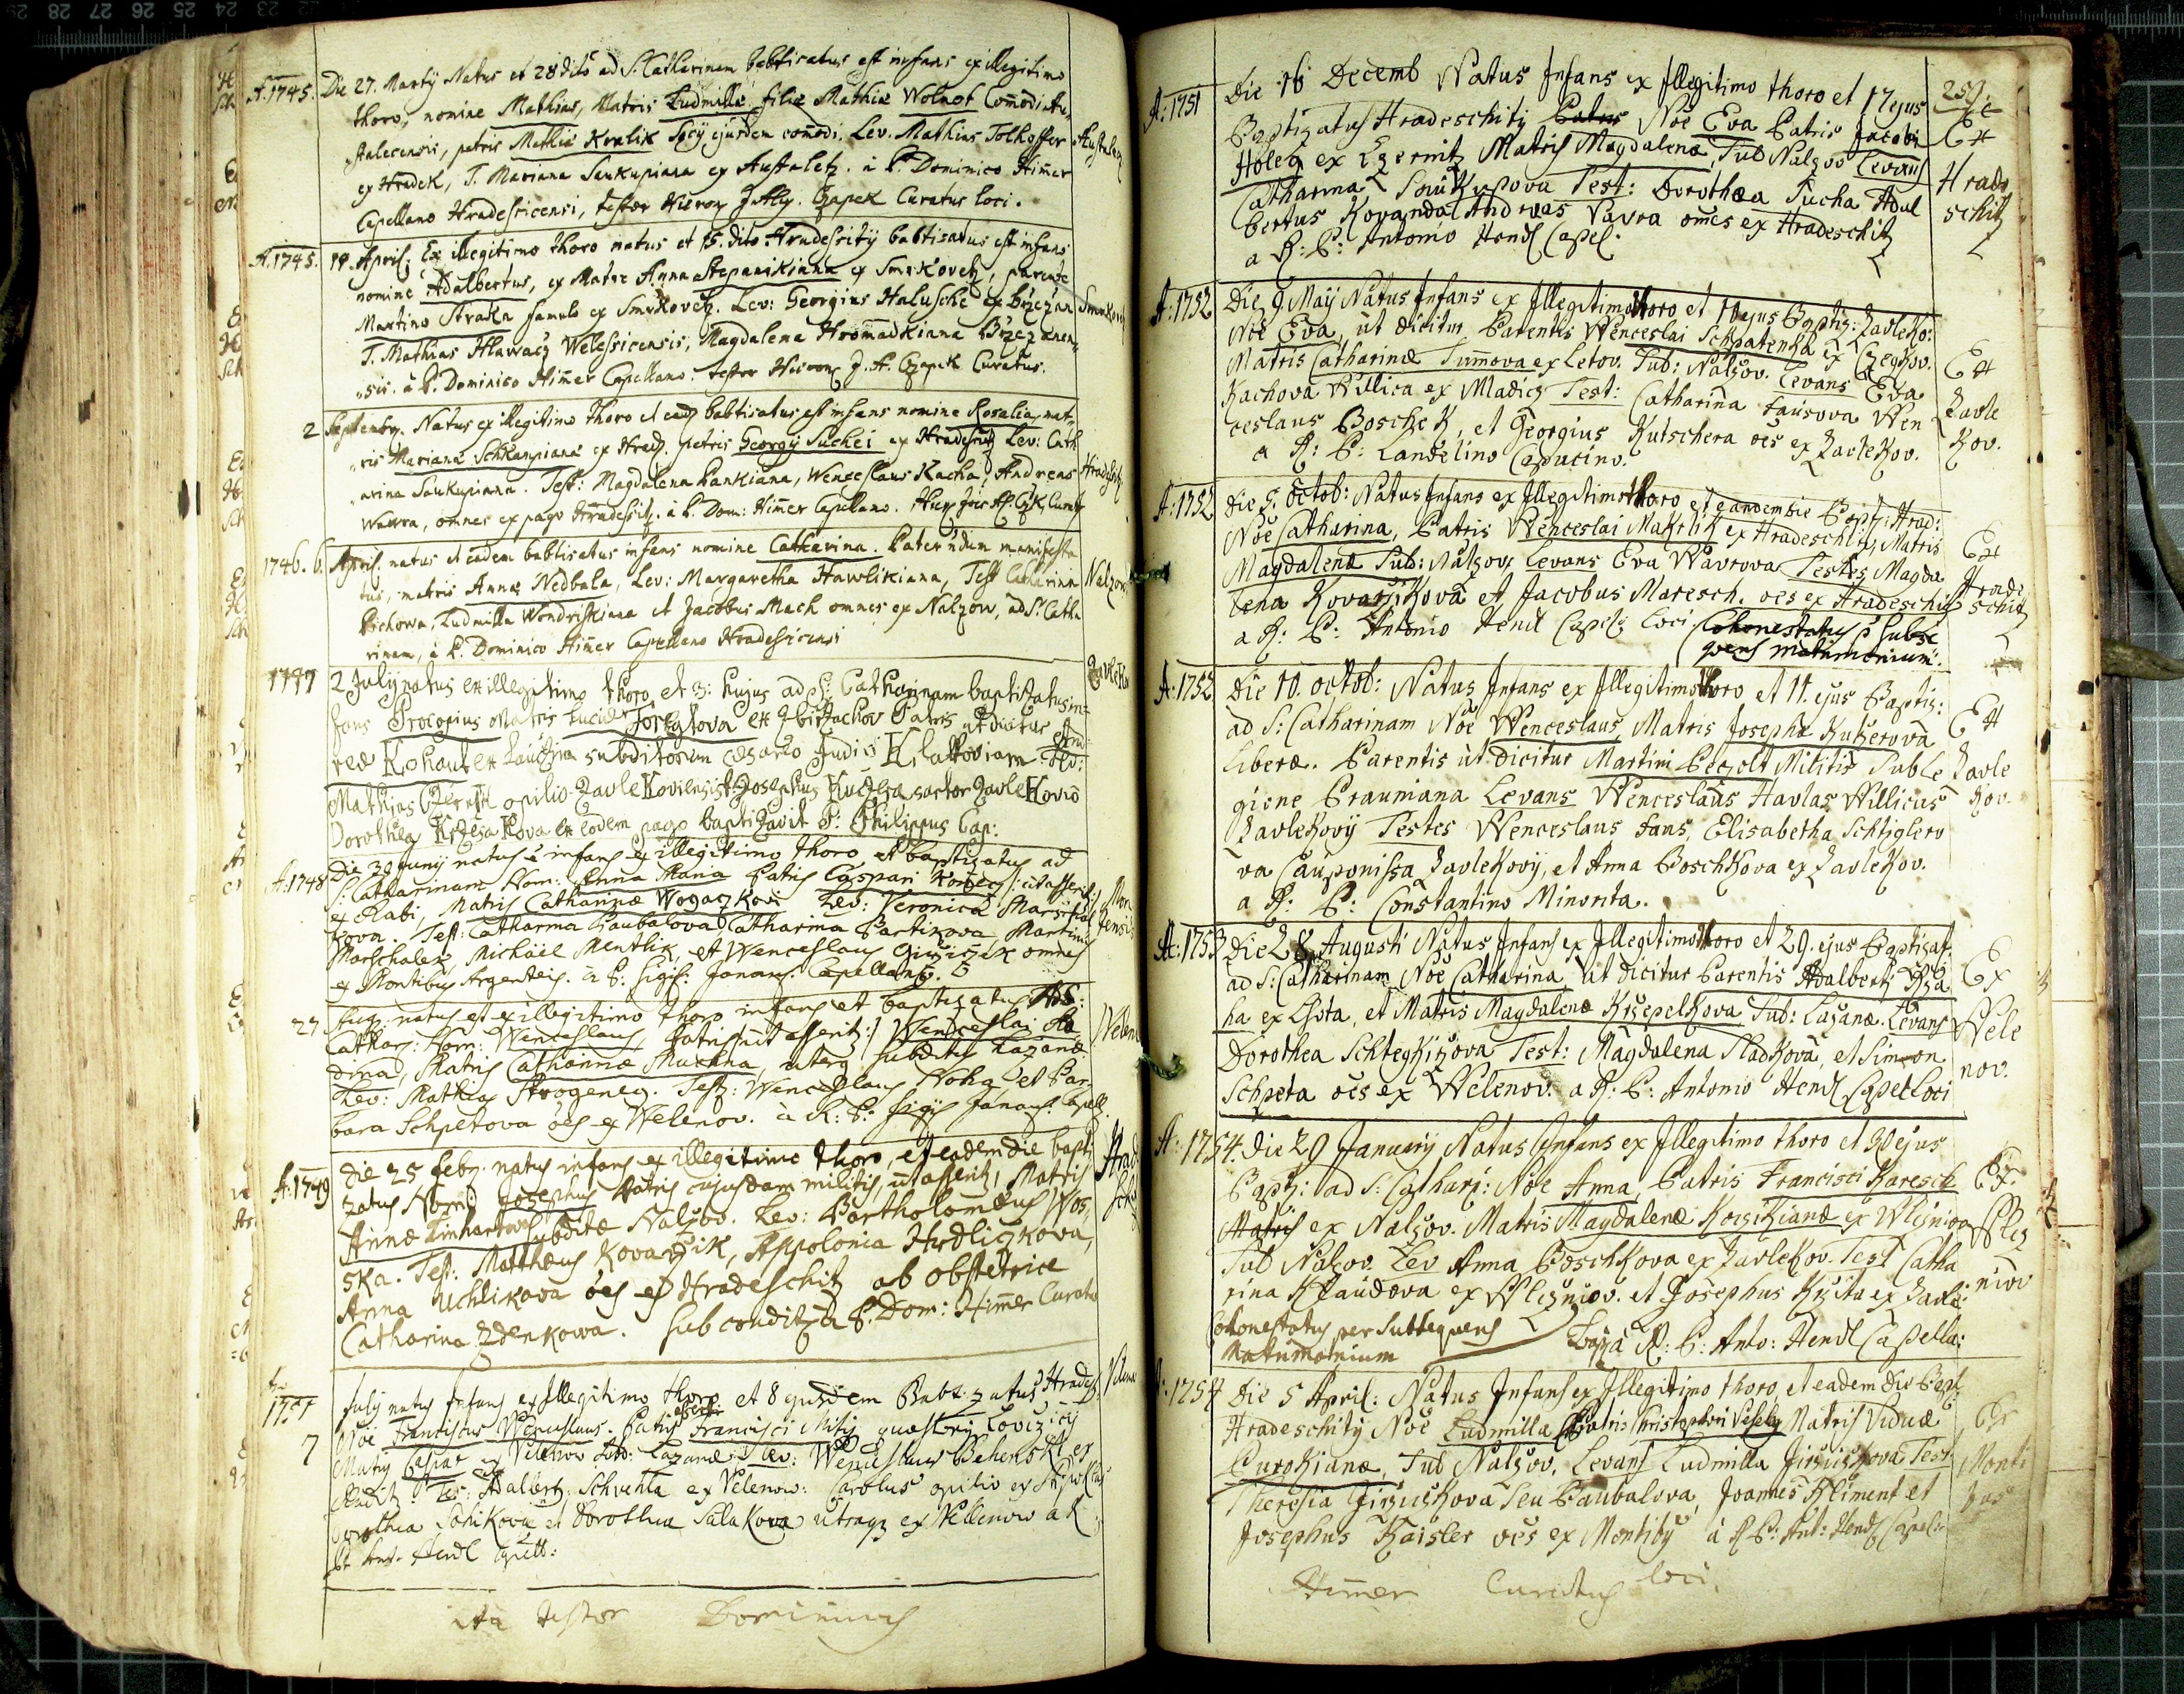 A. 1745. Die 27. Martÿ Natus et 28 dito ad S. Catharinam babtisatus est infans ex illegitimo
thoro, nomine Mathias, Matris Ludmillæ filiæ Mathiæ Wolnof Com̄odi Au-
stalecensis, patris Mathiæ Kralik Socÿ ejusdem comodi. Lev. Mathias Tolhoffer
ex Hradek, T. Mariana Saukupiana ex Austaletz. à P. Dominico Him̄er
Capellano Hradesicensi, testor Hieron Czapek Curatus loci.
A. 1745. 14. April: Ex illegitimo thoro natus et 15. dito Hradesitÿ babtisatus est infans
nomine Adalbertus, ex Matre Anna Stepanikiana ex Smrkovetz, parente
Martino Straka famulo ex Smrkovetz. Lev: Georgius Halusche ex Brzezan
T. Mathias Hlawacz Welessicensis, Magdalena Hrom̄adkiana Brzezanen-
sis. à P. Dominico Him̄er Capellano. testor Hieron J. A. Czapek Curatus.
2 Septembr. Natus ex illegitimo thoro et eadem babtisatus est infans nomine Rosalia mat-
ris Mariana Schkampiana ex Hrad. patris Georgÿ Suchei ex Hradesitz Lev: Cath
arina Saukupiana. Test: Magdalena Pankiana, Wenceslaus Kacha, Andreas Hradesitz
Wawra, omnes ex pago Hradessitz. à P. Dom: Him̄er Capellano.
1746. 6. April. natus et eadem babtisatus infans nomine Catharina. Pater n̄dum manifesta
tus, matris Annæ Nedbala, Lev: Margaretha Hawlikiana, Test Catharina Nalzov
Pichowa, Ludmilla Wondriskiana et Jacobus Mach omnes ex Nalzow, ad S. Catha
rinam, à P. Dominico Him̄er Capellano Hradesicensi
1747 2 Julÿ natus ex illegitimo thoro, et 3: hujus ad S: Catharinam baptisatus in-
fans Procopius Matris Luciæ Patris ut dicitur And-
reæ Kohaut ex subditorum
Mathias opilio Zavlekoviensis T: Josephus sartor Zavlekoviȩ̄
Dorothea ex eodem pago baptizavit P: Philippus Cap:
A: 1748 Die 30 Junÿ natus è infans ex illegitimo thoro et baptizatus ad
S: Catharinam Nom: Anna Maria Patris Caspari ut asserit
ex Rabi, Matris Catharinæ Wogaczkovi Lev: Veronica Marschal
kova. Test: Catharina Paubalova Catharina Bartikova Martinus
Marschalek, Michäel Mentlik, et Wenceslaus omnes
ex Montibus Argenteis. à P: Sigis: Janaus: Capellano.
27 Aug: natus est ex illegitimo thoro infans et baptizatus Ad S:
Cathar: Nom: Wenceslaus, Patris ut asserit: Wenceslai
Matris Catharinæ Muchna, uterq subditus Lazanæ.
Lev: Mathias Test: Wenceslaus Noha et Bar-
bara Schpetova oēs ex Welenov. a R: P: Sigis Janaus: Capell.
A: 1749 Die 25 Febr. natus infans ex illegitimo thoro, et eadem die bapti
zatus Nom: Josephus Patris cujusdam militis, ut asserit, Matris
Annæ Linhartova subditæ Nalzov. Lev: Bartholomæus Wos,
ska. Test: Matthæus Kovarzik, Appolonia Hrdliczkova,
Anna Uchlikova oēs ex Hradeschitz ab obstetrice
Catharina Zdenkowa. sub condit: à P. Dom: Him̄er Curato
1751
7 Julÿ natus Infans ex Illegitimo thoro et 8 ejusdem Babtizatus Hrades.
Nōe Franciscus Wenceslaus. Patris Francisci
Matris ex Velenov Sub: Lazanæ Lev: Wenceslaus
Tes: Adalbert: Schvehla ex Velenow: Carolus opilio ex
Dorothea et Dorothea Salakova utraq ex Wellenow a R
P: Ant: Hendl
ita testor Dominicus
259.
A: 1751 Die 16 Decemb Natus Infans ex Illegitimo thoro et 17 ejus
Baptizatus Hradeschitÿ Nōe Eva Patris Jacobi
Holeg ex Czernitz Matris Magdalenæ Sub Nalzov Levans
Catharina Saukupova Test: Dorothæa Sucha Adal
bertus Kovanda Andreas Vavra om̄es ex Hradeschitz
a R: P: Antonio Hendl Capel.
Ex Hrade schitz
A: 1752 Die 9 Maÿ Natus Infans ex Illegitimo thoro et 10 ejus Baptiz: Zavleko:
Nōe Eva, ut dicitur Parentis Wenceslai Schpatenka ex Czegkov.
Matris Catharinæ Tum̄ova ex Letov. Sub: Nalzov. Levans Eva
Kachova Willica ex Mladicz Test: Catharina Fausova Wen
ceslaus Boschek, et Georgius Kutschera oēs ex Zavlekov.
a R: P: Landelino Capucino.
Ex Zavle kov.
A: 1752 Die 5. Octob: Natus Infans ex Illegitimo thoro et eandem die Bapt: Hrad:
Nōe Catharina, Patris Wenceslai Makrlik ex Hradeschitz, Matris
Magdalenæ Sub: Nalzov, Levans Eva Wavrova Testes Magda
lena Kovarzikova et Jacobus Maresch. oēs ex Hradeschitz
a R: P: Antonio Hendl Capel: Loci Cohonestatus p̄ subse
quens matrimonium.
Ex Hrade schitz
A: 1752 Die 10. octob: Natus Infans ex Illegitimo thoro et 11. ejus Baptiz:
ad S: Catharinam Nōe Wenceslaus, Matris Josephæ Kutzerova
Liberæ. Parentis ut dicitur Martini Pegolt Militis sub Le
gione Prauniana Levans Wenceslaus Havlas Willicus
Zavlekovÿ Testes Wenceslaus Fans, Elisabetha Schtiglero
va Cauponissa Zavlekovÿ, et Anna Boschkova ex Zavlekov.
a R: P: Constantino Minorita.
Ex Zavle kov.
A: 1753 Die 28 Augusti Natus Infans ex Illegitimo thoro et 29. ejus Baptizat.
ad S: Catharinam Nōe Catharina, ut dicitur Parentis Adalberti Rza
ha ex Lhota, et Matris Magdalenæ Krzepelkova Sub: Lazanæ. Levans
Dorothea Schtegkizova Test: Magdalena Sladkova, et Simeon
Schpeta oēs ex Welenov. a R: P: Antonio Hendl Capel Loci
Ex Vele nov.
A: 1754. Die 29 Januarÿ Natus Infans ex Illegitimo thoro et 30 ejus
Baptz: ad S: Cathari: Nōe Anna, Patris Francisci Karesch
ex Nalzov. Matris Magdalenæ ex Wliznov
Sub Nalzov. Lev Anna Boschkova ex Zavlekov. Test Catha
rina Klaudova ex Pliżniov. et Josephus ex Zavle:
Cohonestatus per subsequens Bapt: à R: P: Anto: Hendl Capella:
Matrimonium
Ex Pliz niov
A: 1754 Die 5 April: Natus Infans ex Illegitimo thoro, et eadem die Bapt
Hradeschitÿ Nōe Ludmilla Patris Christophori Vesely Matris Viduæ
Purokianæ, Sub Nalzov. Levans Ludmilla Jirziczkova Test:
Theresia Jirziczkova seu Paubalova, Joannes Kliment et
Josephus Kaisler oēs ex Montibȳ à R P: Ant: Hendl Capel:
Ex Monti bus
Him̄er Curatus loci.